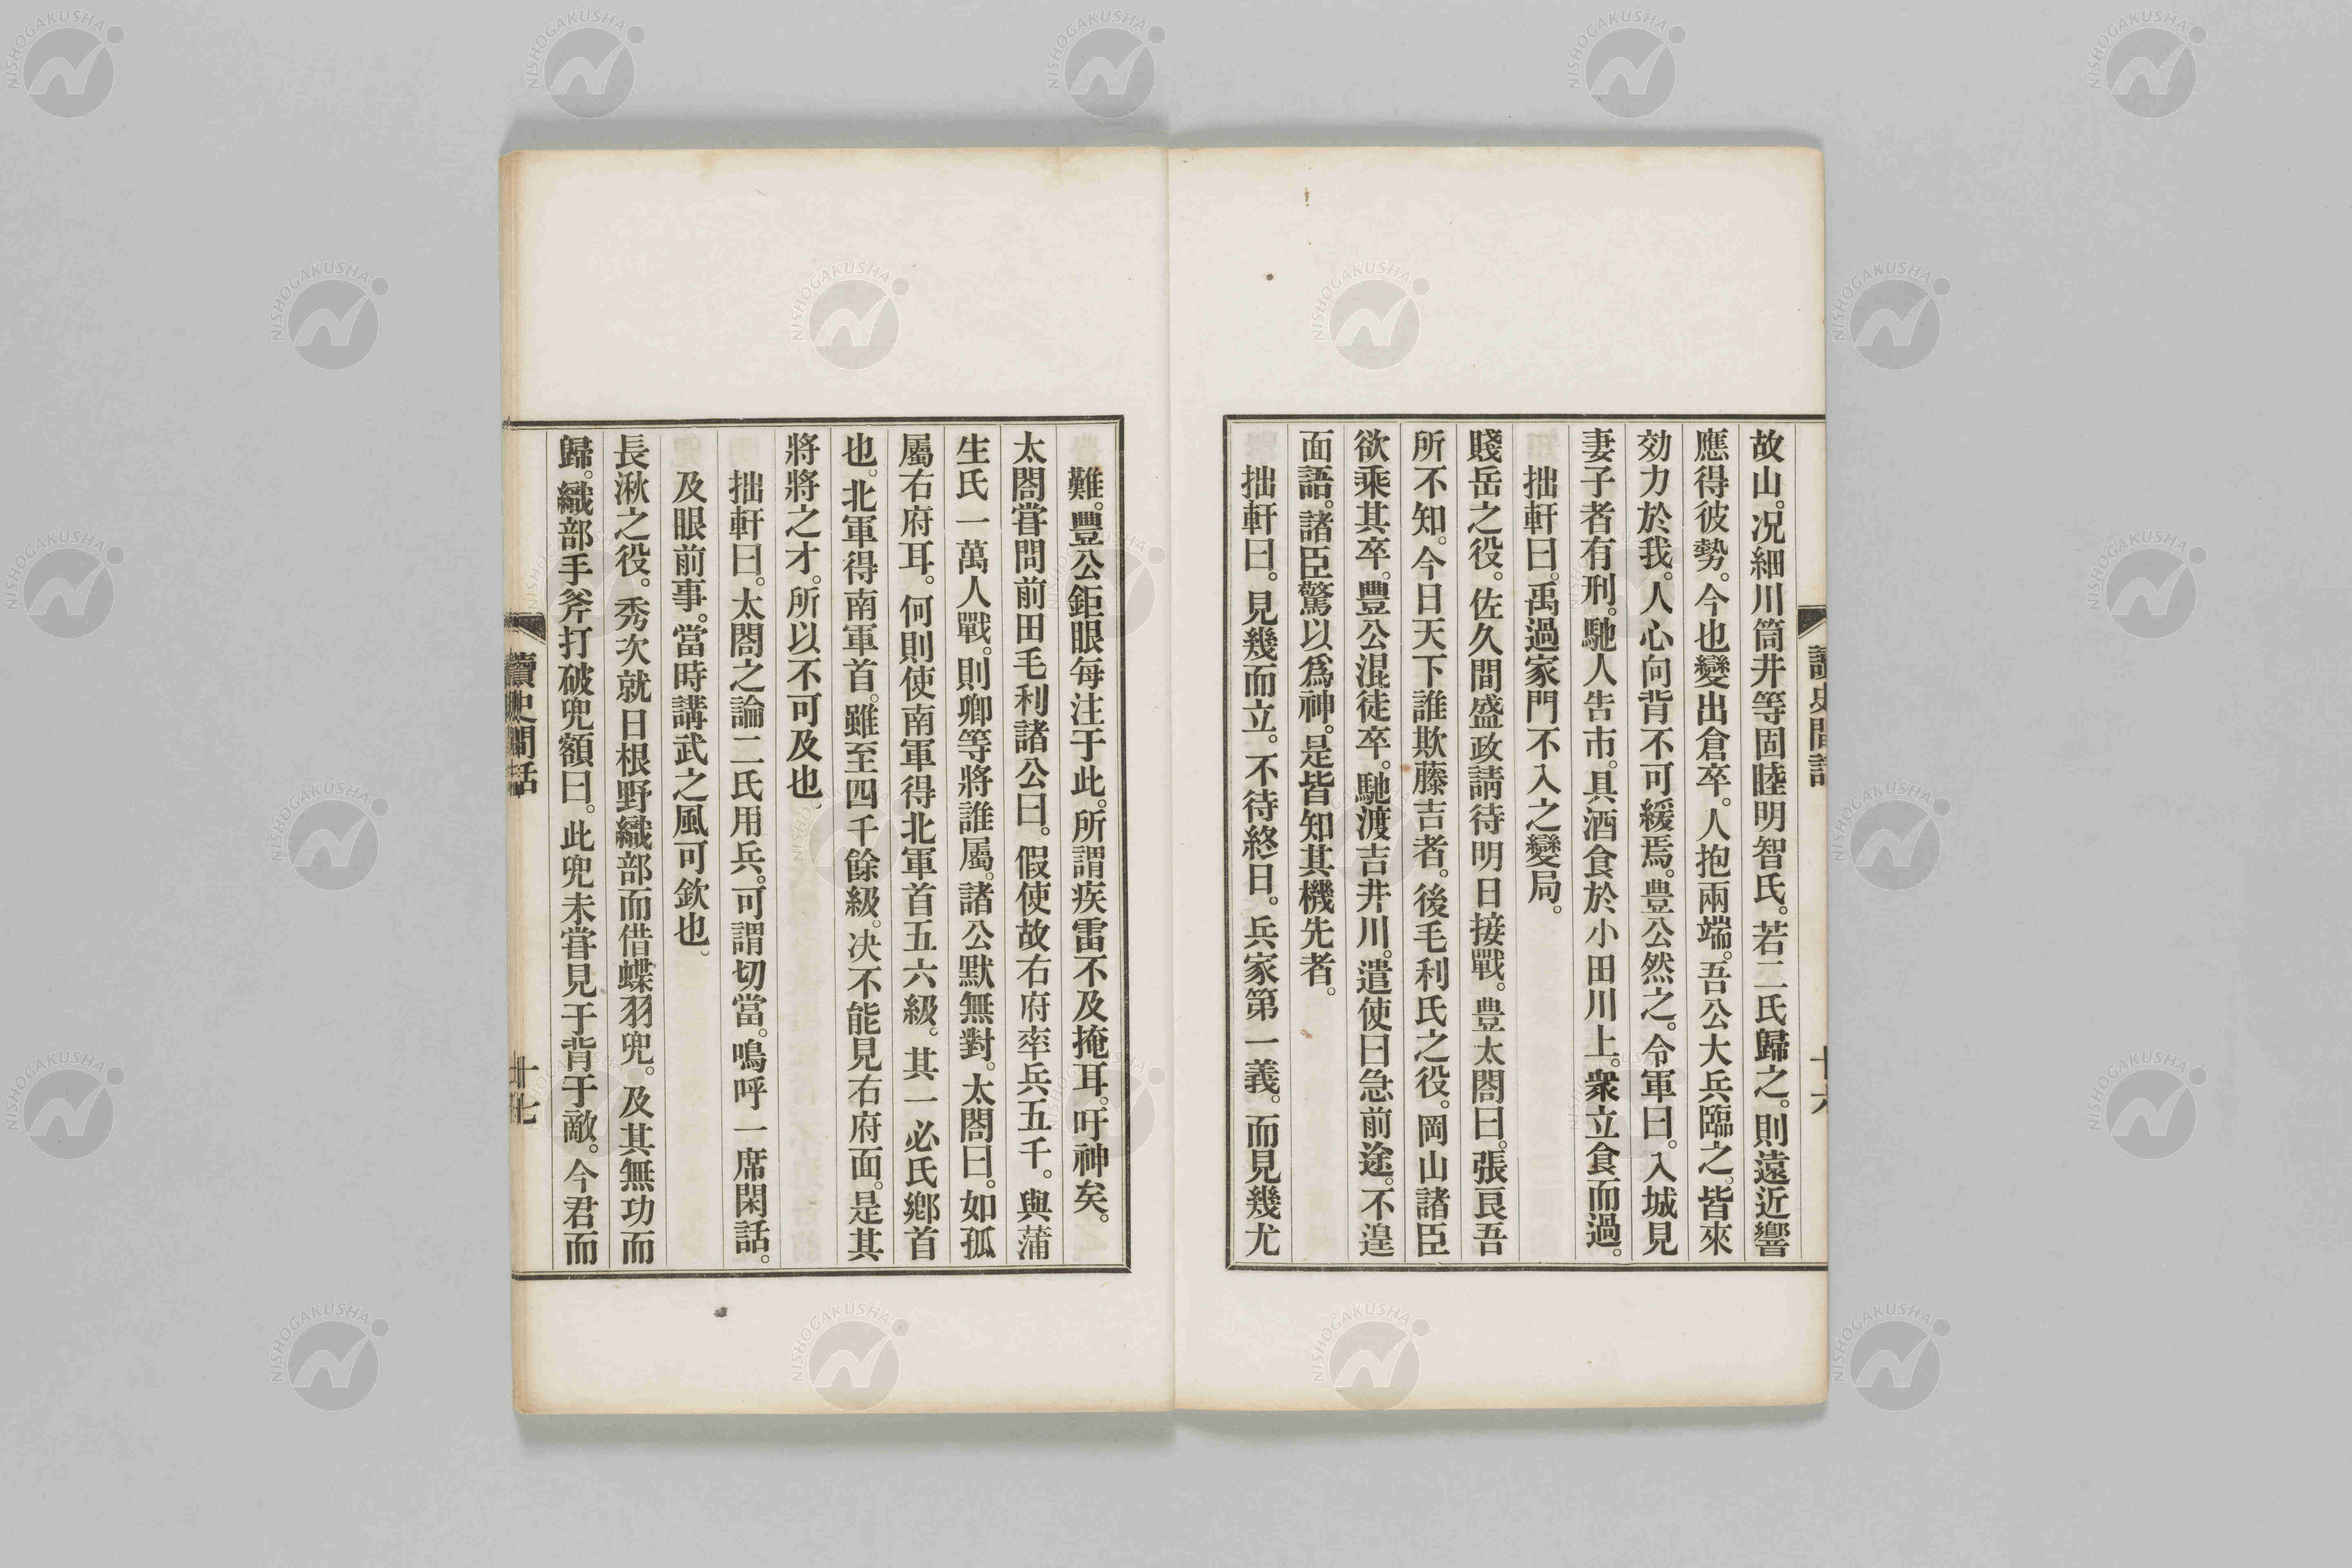 讀史閒話
十六
故山。况細川筒井等固睦明智氏。若二氏歸之。則遠近響
應得彼勢。今也變出倉卒。人抱兩端。吾公大兵臨之。皆來
効力於我。人心向背不可緩焉。豊公然之。令軍曰。入城見
妻子者有刑。馳人告市。具酒食於小田川上。衆立食而過。
拙軒曰。禹過家門不入之變局。
賤岳之役。佐久間盛政請待明日接戰。豊太閤曰。張良吾
所不知。今日天下誰欺藤吉者。後毛利氏之役。岡山諸臣
欲乘其卒。豊公混徒卒。馳渡吉井川。遣使曰急前途。不遑
面語。諸臣驚以爲神。是皆知其機先者。
拙軒曰。見幾而立。不待終日。兵家第一義。而見幾尤
難。豊公鉅眼每注于此。所謂疾雷不及掩耳。吁神矣。
太閤甞問前田毛利諸公曰。假使故右府率兵五千。與蒲
生氏一萬人戰。則卿等將誰屬。諸公默無對。太閤曰。如孤
屬右府耳。何則使南軍得北軍首五六級。其一必氏鄉首
也。北軍得南軍首。雖至四千餘級。决不能見右府面。是其
將將之才。所以不可及也。
拙軒曰。太閤之論二氏用兵。可謂切當。鳴呼一席閑話。
及眼前事。當時講武之風可欽也。
長湫之役。秀次就日根野織部而借蝶羽兜。及其無功而
歸。織部手斧打破兜額曰。此兜未甞見于背于敵。今君而
讀史閒話
十七
NISHOGAKUSHA